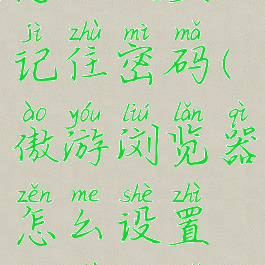 jì zhù mì mǎ
记住密码(
ào yóu liú lǎn qì
傲游浏览器
zěn me shè zhì
怎么设置